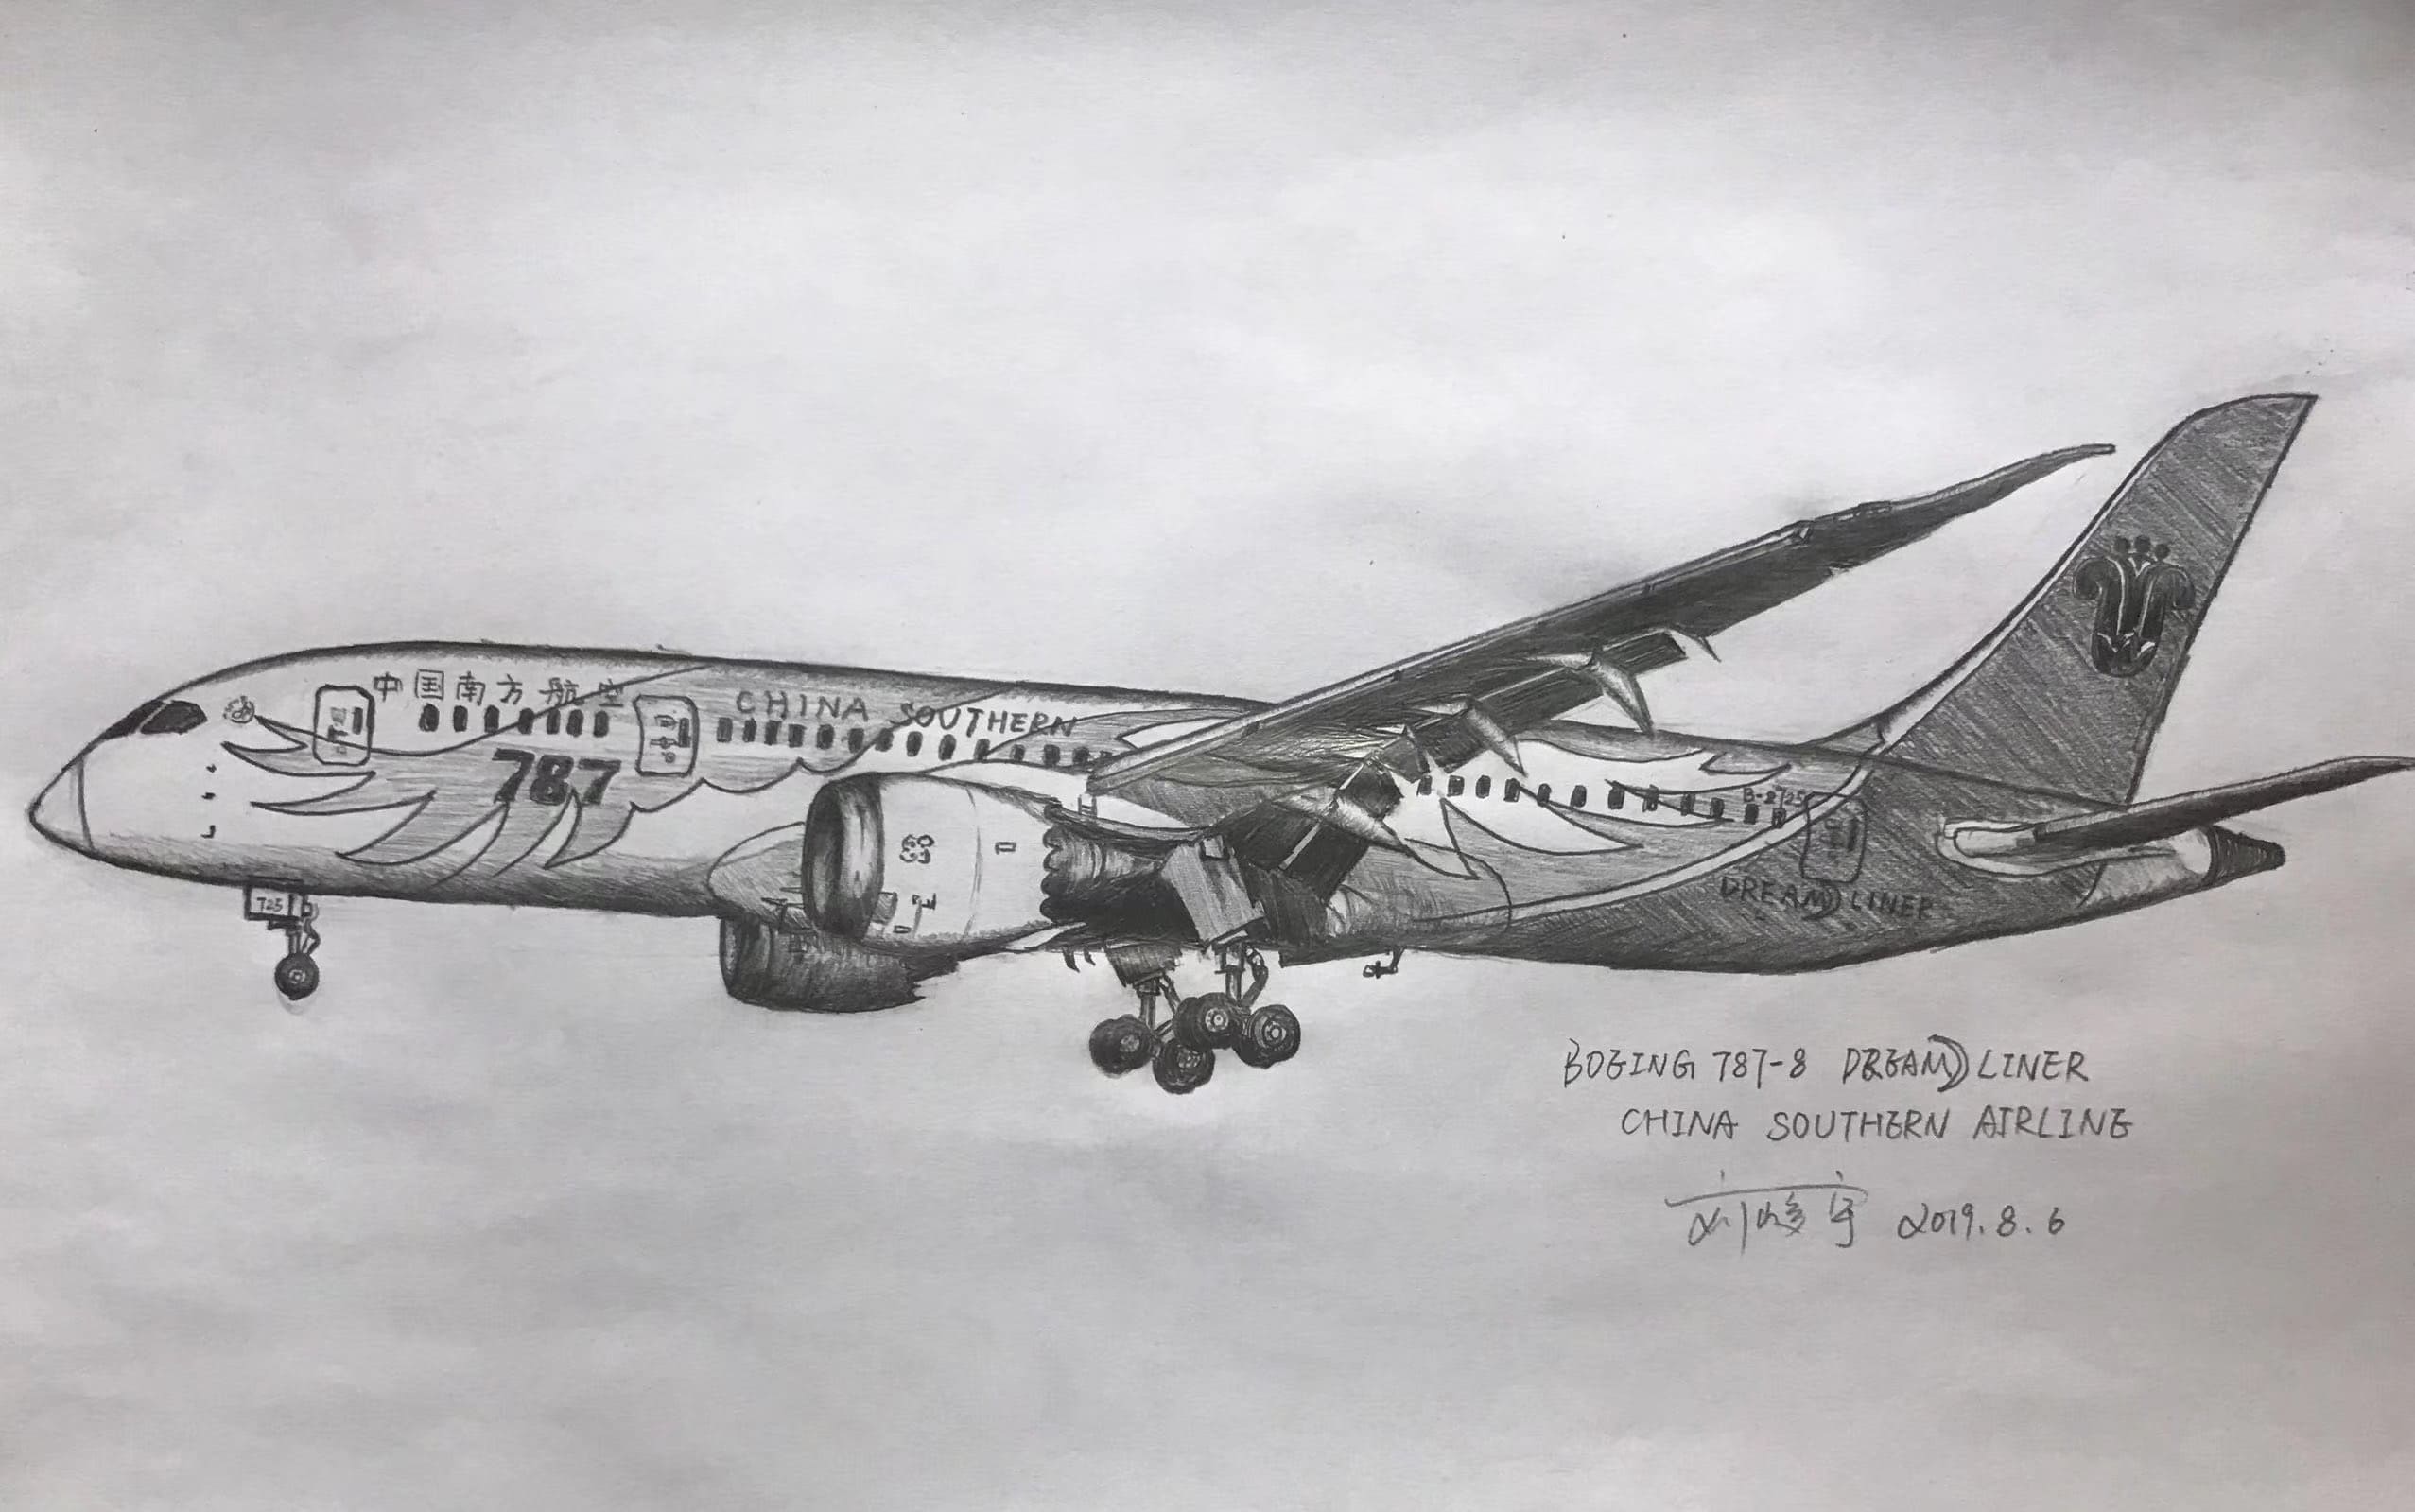 中国南方航空
CHINA SOUTHERN
787
725
B-2725
DREAMLINER
BOEING 787-8 DREAMLINER
CHINA SOUTHERN AIRLINE
2019.8.6